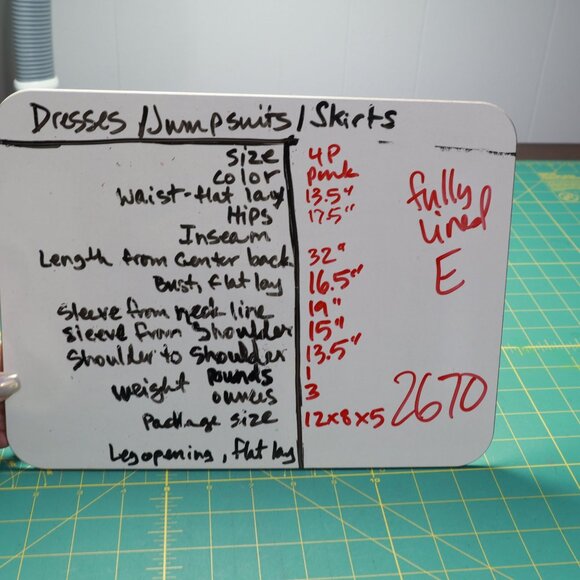 Dresses / Jumpsuits / Skirts
Size 4P
Color Pink
Waist-flat lay 13.5"
Hips 17.5"
Inseam
Length from Center back 32"
Bust, flat lay 16.5"
Sleeve from neck-line 19"
Sleeve from Shoulder 15"
Shoulder to Shoulder 13.5"
Weight pounds 1
ounces 3
Package size 12x8x5
Leg opening, flat lay
fully
lined
E
2670